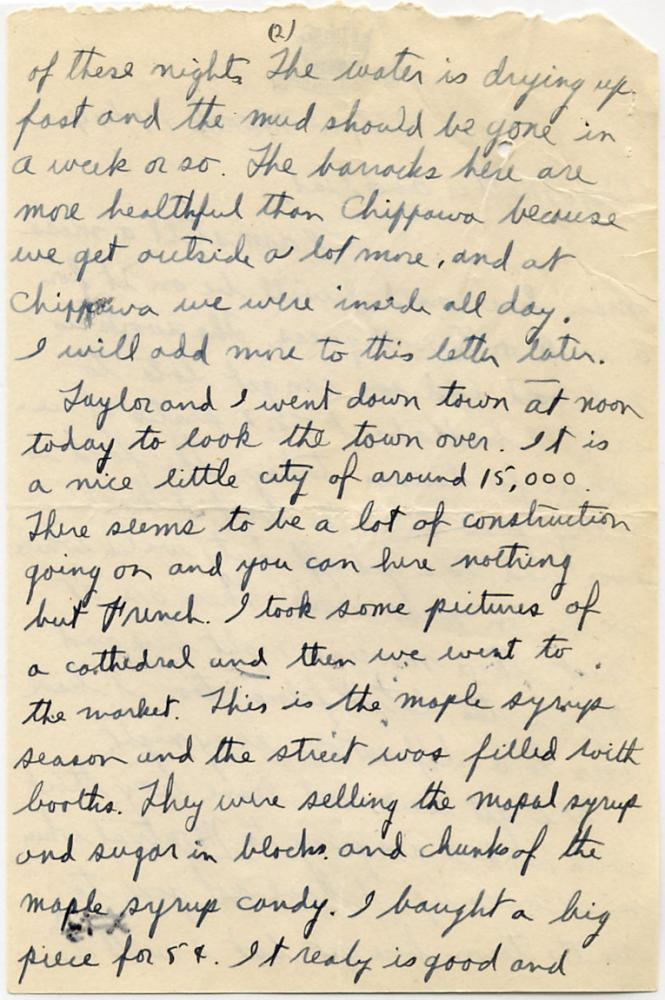 (2)
of these nights The water is drying up
fast and the mud should be gone in
a week or so. The barracks here are
more healthful than Chippawa because
we get outside a lot more, and at
Chippawa we were inside all day.
I will add more to this letter later.
Taylor and I went down town at noon
today to look the town over. It is
a nice little city of around 15,000.
There seems to be a lot of construction
going on and you can here nothing
but French. I took some pictures of
a cathedral and then we went to
the market. This is the maple syrup
season and the street was filled with
booths. They were selling the mapal syrup
and sugar in blocks and chunks of the
maple syrup candy. I baught a big
piece for 5¢. It realy is good and